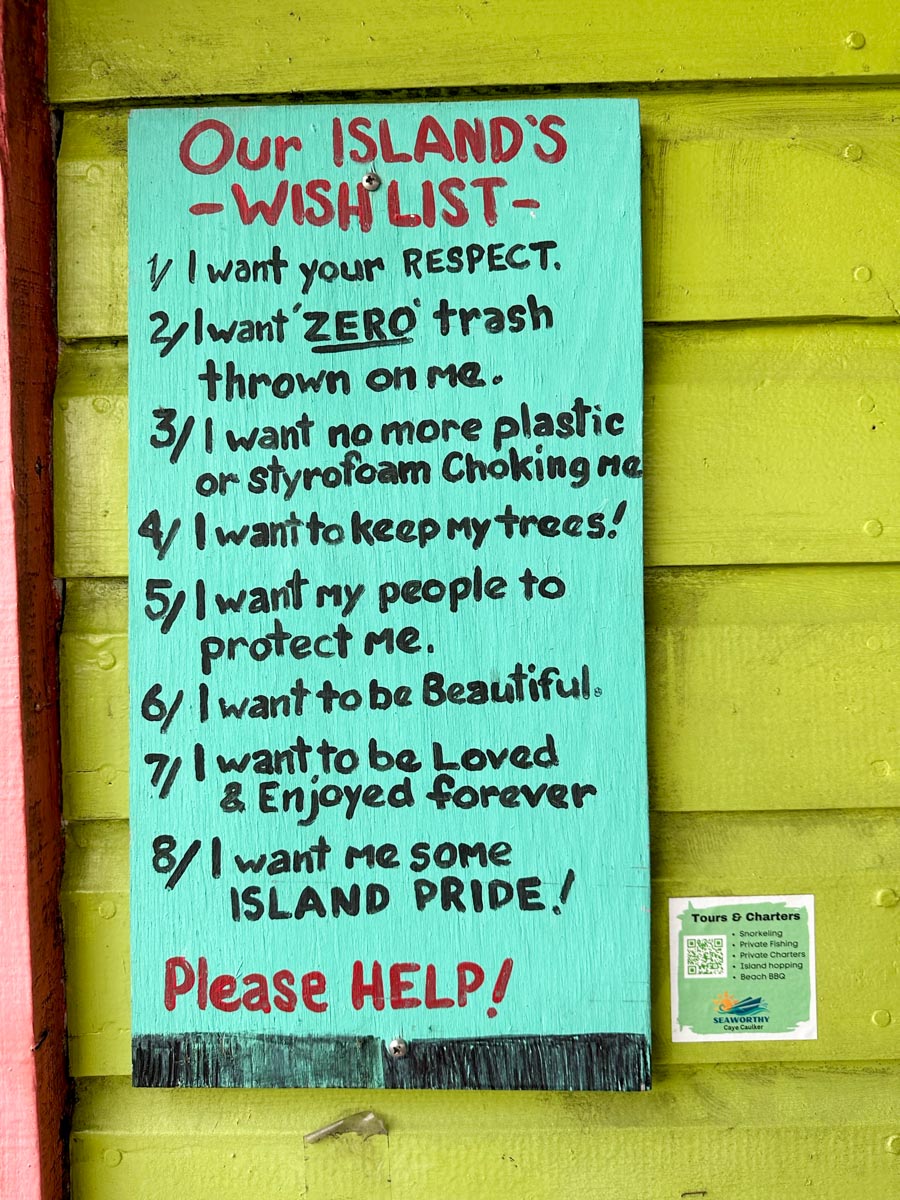 Our ISLAND'S
- WISH LIST -
1/ I want your RESPECT.
2/ I want 'ZERO' trash
thrown on me.
3/ I want no more plastic
or styrofoam Choking me
4/ I want to keep my trees!
5/ I want my people to
protect me.
6/ I want to be Beautiful.
7/ I want to be Loved
& Enjoyed forever
8/ I want me some
ISLAND PRIDE!
Please HELP!
Tours & Charters
• Snorkeling
• Private Fishing
• Private Charters
• Island hopping
• Beach BBQ
SEAWORTHY
Caye Caulker